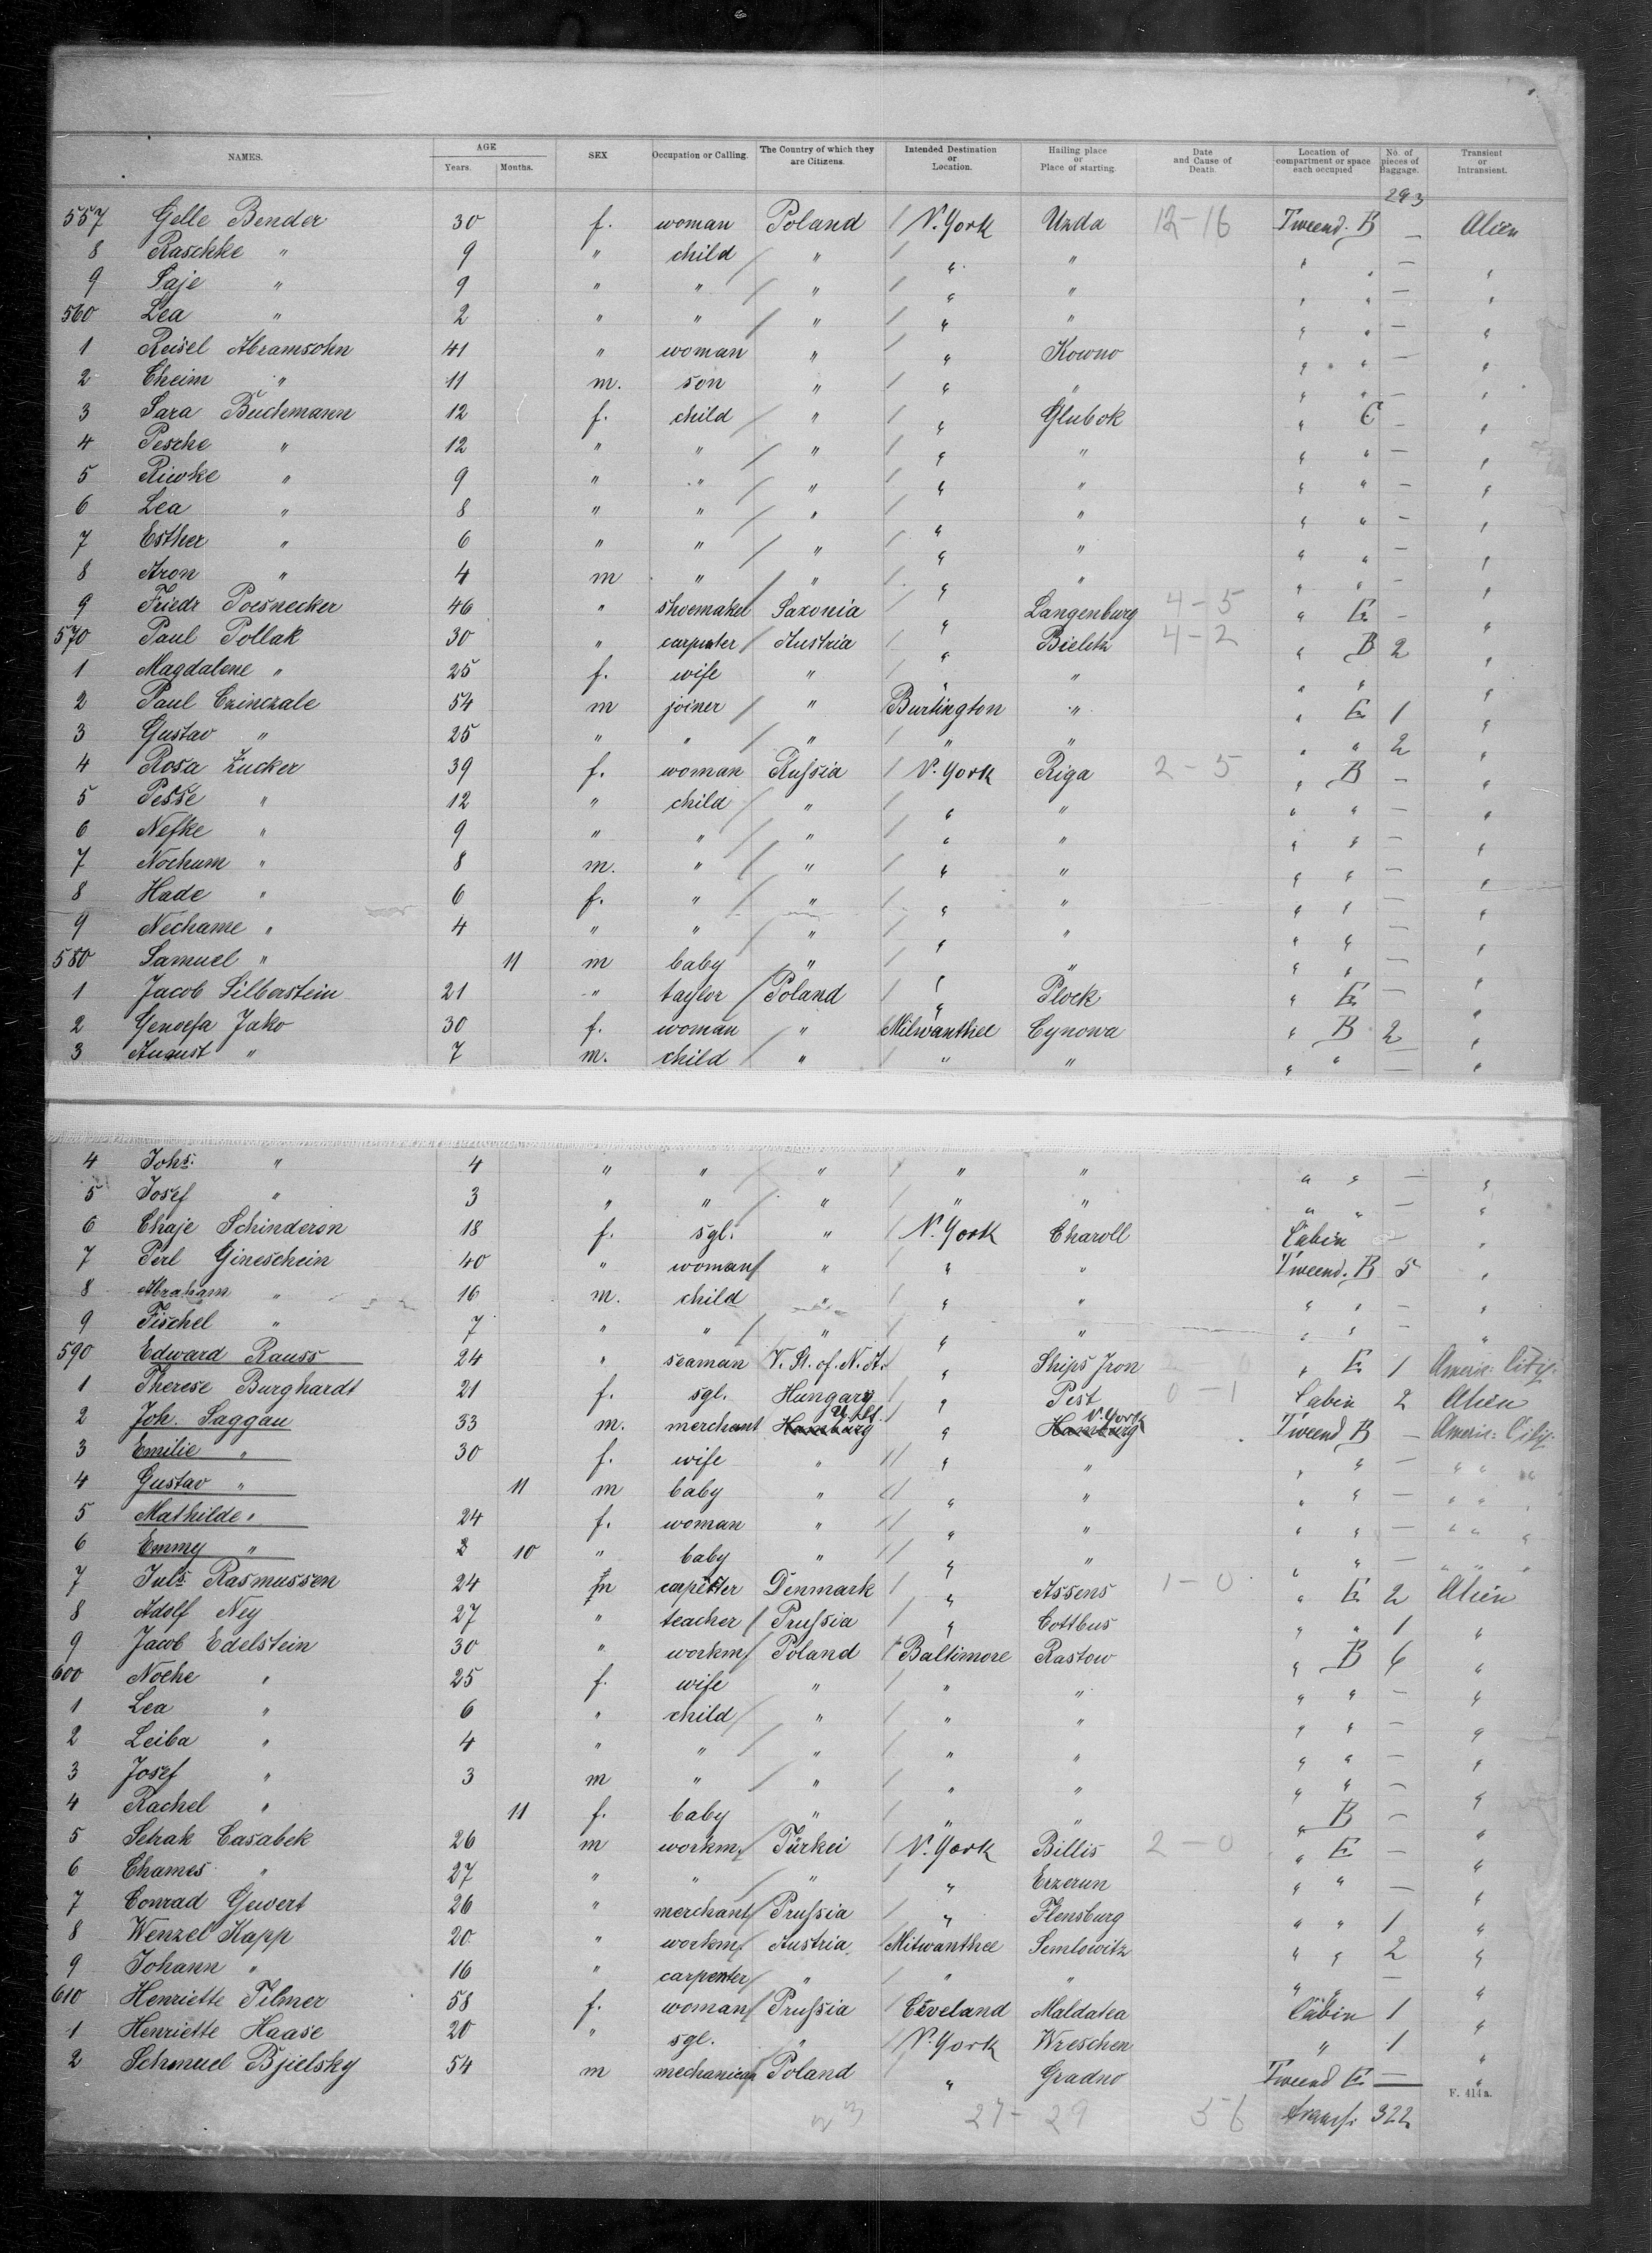 NAMES. AGE Years. Months. SEX Occupation or Calling. The Country of which they are Citizens. Intended Destination or Location. Hailing place or Place of starting. Date and Cause of Death. Location of compartment or space each occupied No. of pieces of Baggage. Transient or Intransient.
293
557 Gelle Bender 30 f. woman Poland / N. York Uzda 12-16 Tweend. B — Alien
8 Raschke " 9 " child / " / " " " " — "
9 Saje " 9 " " / " / " " " " — "
560 Lea " 2 " " / " / " " " " — "
1 Reisel Abramsohn 41 " woman " / " Kowno " " — "
2 Cheim " 11 m. son " / " " " " — "
3 Sara Buchmann 12 f. child / " / " Glubok " C — "
4 Pesche " 12 " " / " / " " " " — "
5 Riwke " 9 " " / " / " " " " — "
6 Lea " 8 " " / " / " " " " — "
7 Esther " 6 " " / " / " " " " — "
8 Aron " 4 m " / " / " " " " — "
9 Friedr Poesnecker 46 " shoemaker Saxonia / " Langenburg 4-5 " E — "
570 Paul Pollak 30 " carpenter / Austria / " Bielitz 4-2 " B 2 "
1 Magdalene " 25 f. wife " / " " " " "
2 Paul Czinczale 54 m joiner / " Burlington " " E 1 "
3 Gustav " 25 " " / " / " " " " 2 "
4 Rosa Zucker 39 f. woman Russia / N. York Riga 2-5 " B — "
5 Pesse " 12 " child / " / " " " " — "
6 Nefke " 9 " " / " / " " " " — "
7 Nochum " 8 m. " / " / " " " " — "
8 Hade " 6 f. " / " / " " " " — "
9 Nechame " 4 " " / " / " " " " — "
580 Samuel " 11 m baby " / " " " " — "
1 Jacob Silberstein 21 " taylor / Poland / " Plock " E — "
2 Genoefa Jako 30 f. woman " Milwanthee Cynowa " B 2 "
3 August " 7 m. child / " / " " " " — "
4 Johs. " 4 " " / " / " " " " — "
5 Josef " 3 " " / " / " " " " — "
6 Chaje Schinderon 18 f. sgl. " / N. York Charoll Cabin — "
7 Perl Gineschein 40 " woman / " / " " Tweend. B 5 "
8 Abraham " 16 m. child " / " " " " — "
9 Fischel " 7 " " / " / " " " " — "
590 Edward Rauss 24 " seaman V. St. of. N. A. " Ships Iron " E 1 Americ: Citiz:
1 Therese Burghardt 21 f. sgl. Hungary / " Pest 0-1 Cabin 2 Alien
2 Joh. Saggau 33 m. merchant Hamburg U. St. / " Hamburg N. York Tweend B — Americ: Citiz:
3 Emilie " 30 f. wife " // " " " " — " "
4 Gustav " 11 m baby " // " " " " — " "
5 Mathilde " 24 f. woman " // " " " " — " "
6 Emmy " 2 10 " baby " // " " " " — " "
7 Juls. Rasmussen 24 m carpitter Denmark / " Assens 1-0 " E 2 Alien
8 Adolf Ney 27 " teacher / Prussia / " Cottbus " " 1 "
9 Jacob Edelstein 30 " workm / Poland / Baltimore Rastow " B 6 "
600 Noche " 25 f. wife " / " " " " — "
1 Lea " 6 " child / " / " " " " — "
2 Leiba " 4 " " / " / " " " " — "
3 Josef " 3 m " / " / " " " " — "
4 Rachel " 11 f. baby " / " " " B — "
5 Setrak Casabek 26 m workm / Türkei / N. York Billis 2-0 " E — "
6 Chames " 27 " " / " / " Erzerun " " — "
7 Conrad Gewert 26 " merchant / Prussia / " Flensburg " " 1 "
8 Wenzel Kapp 20 " workm. Austria / Milwanthee Semlowitz " " 2 "
9 Johann " 16 " carpenter / " / " " " " — "
610 Henriette Filmer 58 f. woman / Prussia / Cleveland Maldatea Cabin 1 "
1 Henriette Haase 20 " sgl. " / N. York Wreschen " 1 "
2 Schmuel Bjielsky 54 m mechanican Poland / " Gradno Tweend E — "
F. 414a.
23 27-29 56 transf. 322